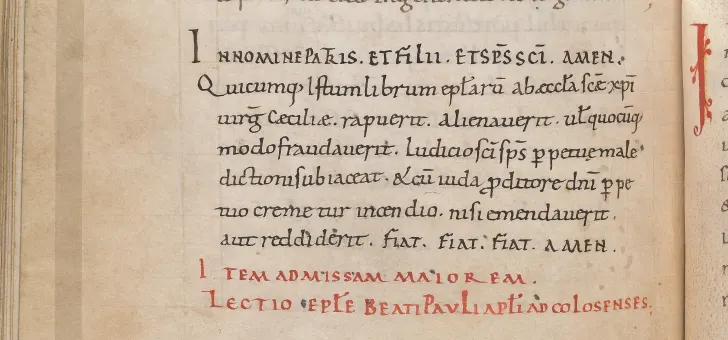 IN NOMINE PATRIS. ET FILII. ET SP̄S SC̄I. AMEN.
Quicumq; Istum librum epła℟ū ab æccła sc̄æ xp̄i
uirḡ Ceciliæ. rapuerit. Alienauerit. uł quocūq;
modo fraudauerit. Iudicio sc̄i sp̄s p̄petuę male
dictioni subiaceat. & cū iuda p̄ditore dn̄i p̄pe
tuo cremetur incendio. nisi emendauerit.
aut reddiderit. FIAT. FIAT. FIAT. AMEN.
ITEM AD MISSAM MAIOREM.
LECTIO EPŁE BEATI PAULI APŁI AD COLOSENSES.